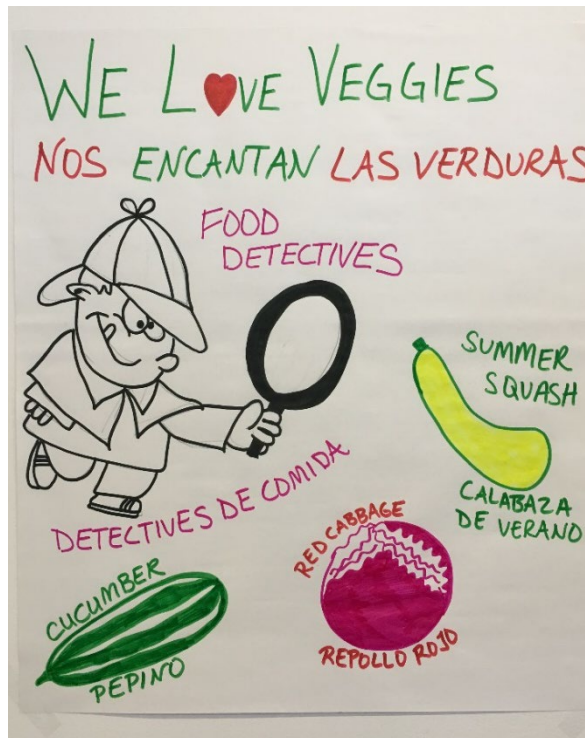 WE LOVE VEGGIES
NOS ENCANTAN LAS VERDURAS
FOOD
DETECTIVES
SUMMER
SQUASH
CALABAZA
DE VERANO
DETECTIVES DE COMIDA
RED CABBAGE
REPOLLO ROJO
CUCUMBER
PEPINO